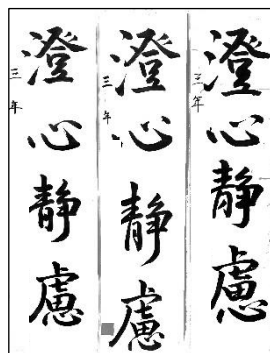 澄心静慮
三年
澄心静慮
三年
澄心静慮
三年